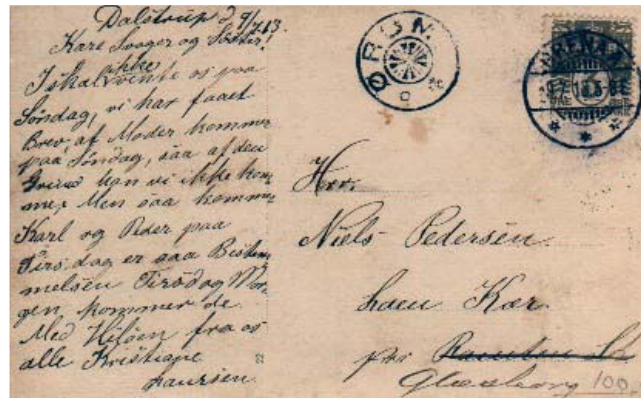 Dalstrup d 9/7 13.
Kære Svoger og Søster!
I skal ikke vente os paa
Søndag, vi har faaet
Brev af Moder kommer
paa Søndag, saa af den
Grund kan vi ikke kom-
me, Men saa kommer
Karl og Peder paa
Tirsdag er saa Bestem-
melsen Tirsdag Mor-
gen kommer de
Med Hilsen fra os
alle Kristiane
Laursen.
ØRUM
GRENAA
9.7.13.5-8E
Hrr.
Niels Pedersen
Kær
per
Glæsborg
100,